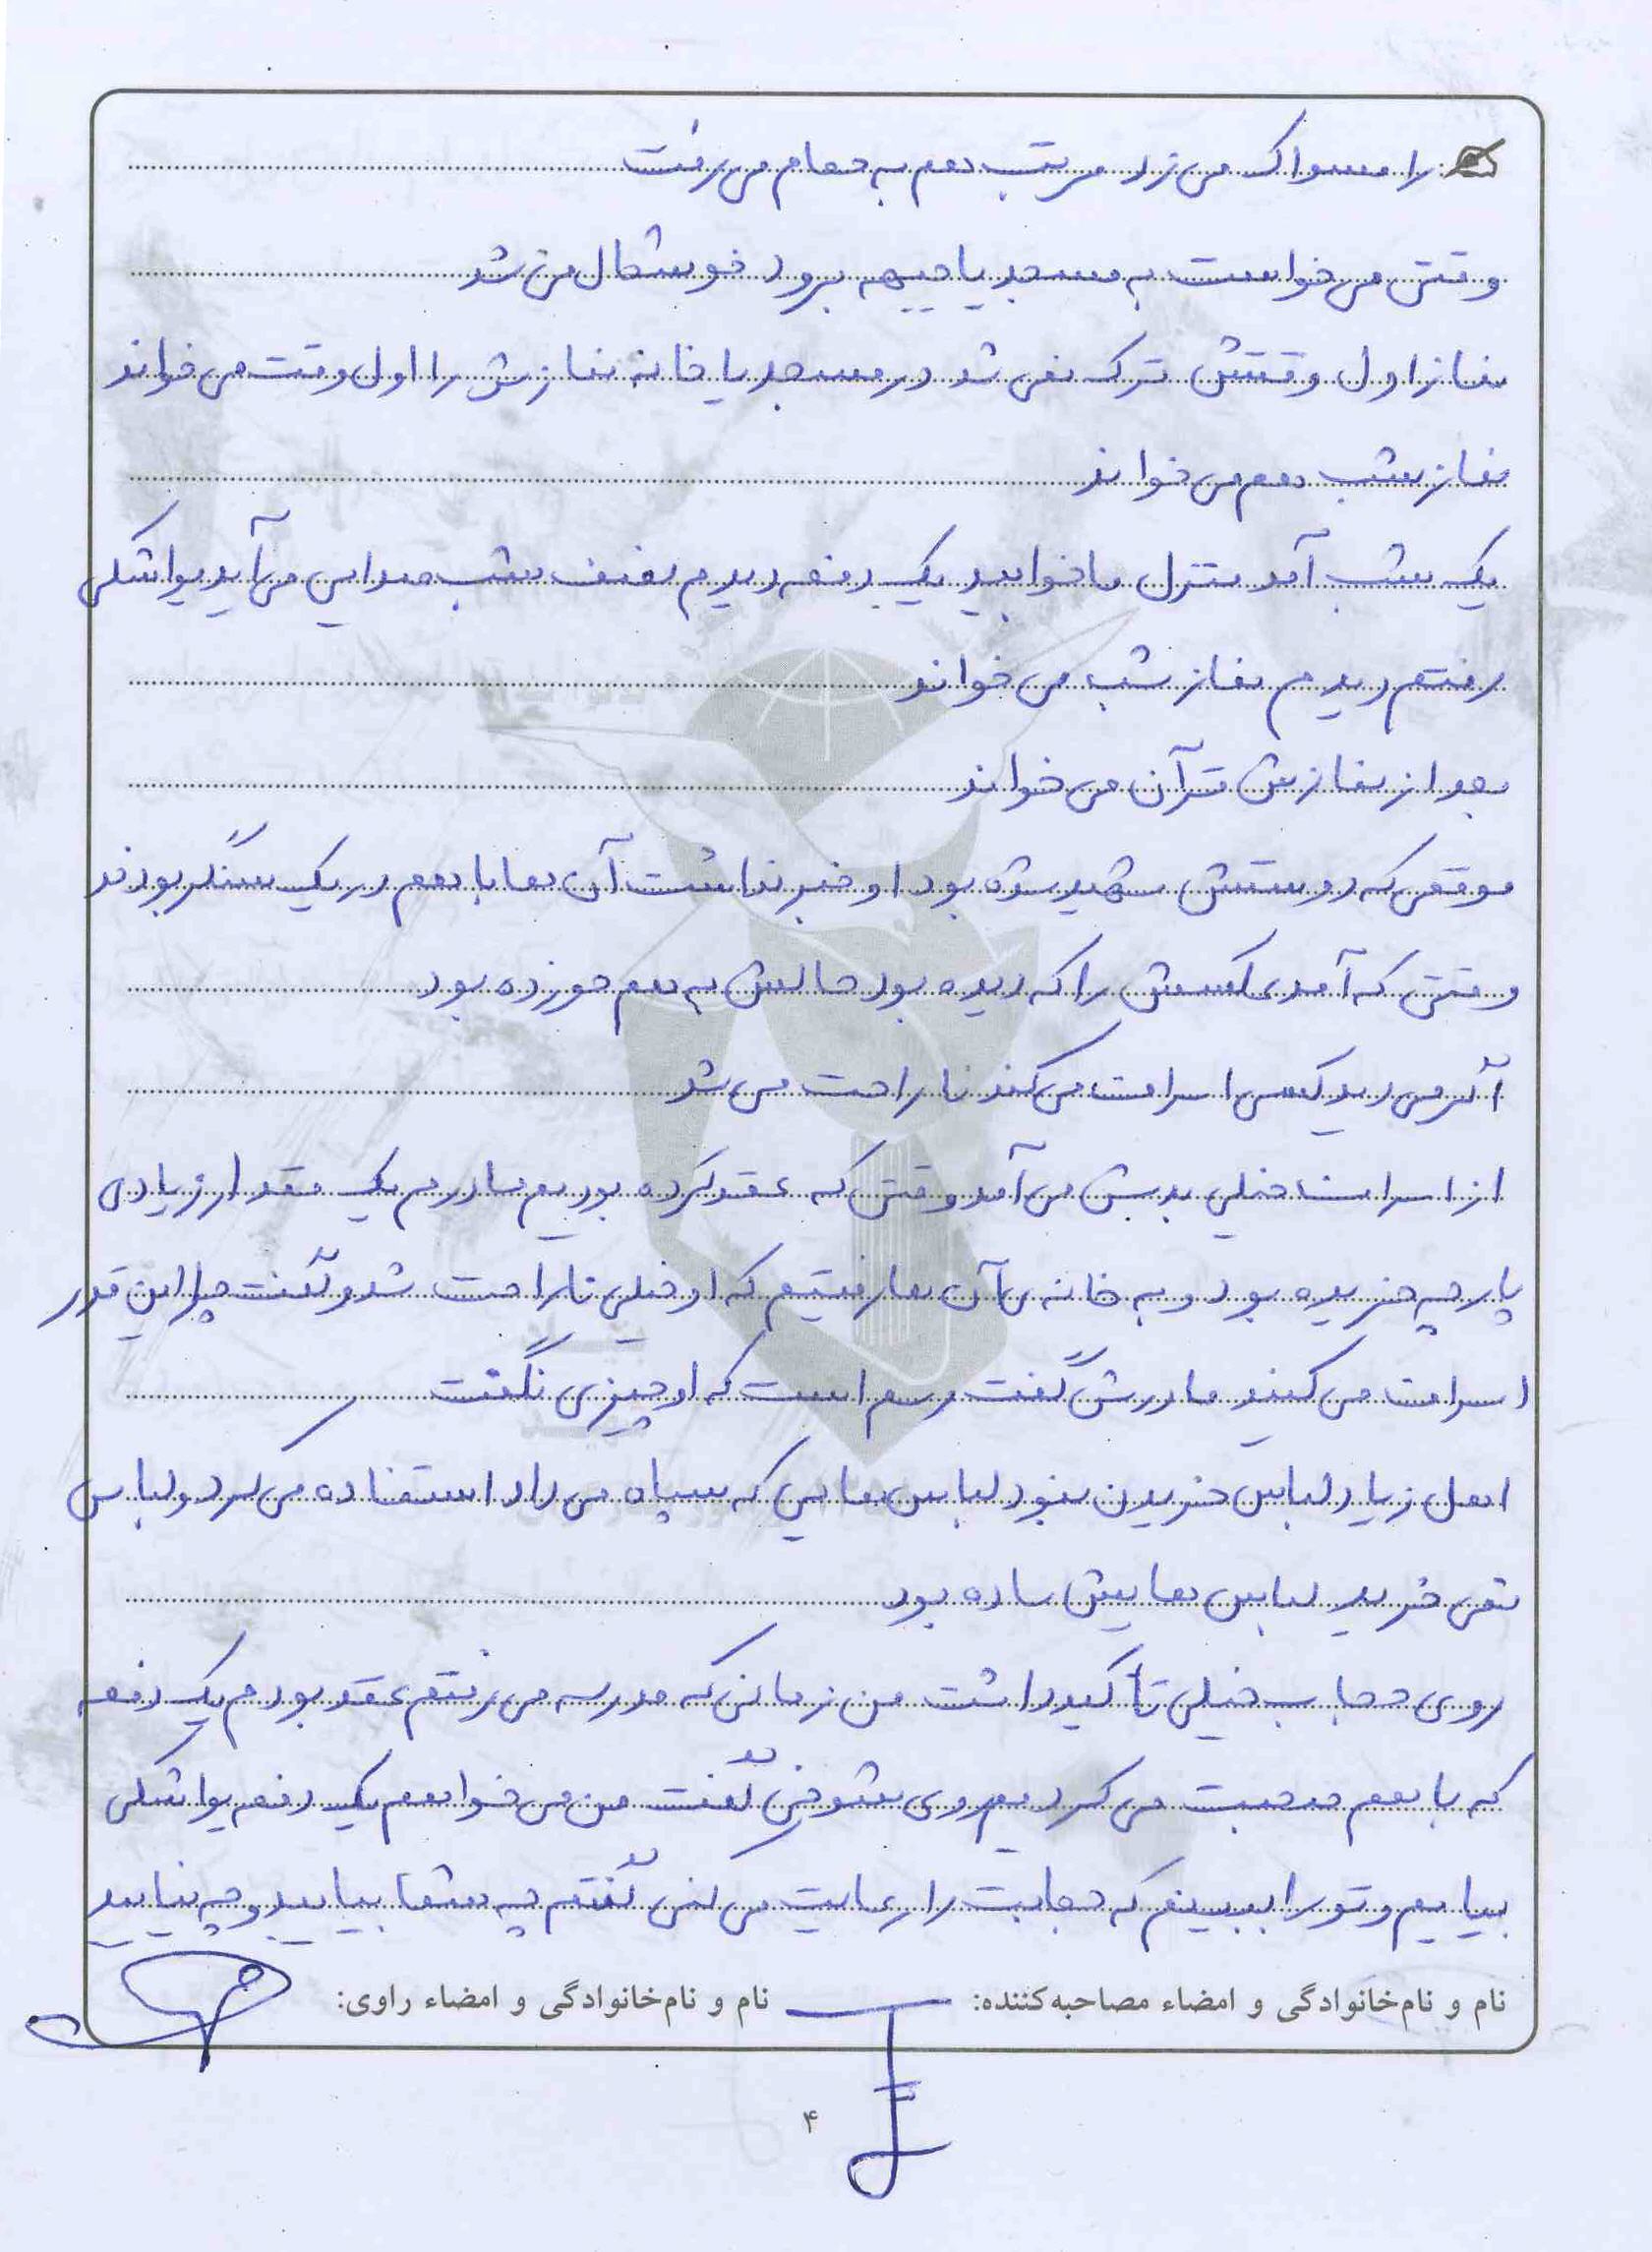 را مسواک می زد مرتب هم به حمام می رفت
وقتی می خواست به مسجد یا جبهه برود خوشحال می شد
نماز اول وقتش ترک نمی شد در مسجد یا خانه نمازش را اول وقت می خواند
نماز شب هم می خواند
یک شب آمد منزل ما خوابید یک دفعه دیدم نصف شب صدایی می آید یواشکی
رفتم دیدم نماز شب می خواند
بعد از نمازش قرآن می خواند
موقعی که دوستش شهید شده بود او خبر نداشت آن ها با هم در یک سنگر بودند
وقتی که آمد عکسش را که دیده بود حالش به هم خورده بود
اگر می دید کسی اسراف می کند ناراحت می شد
از اسراف خیلی بدش می آمد وقتی که عقد کرده بودیم مادرم یک مقدار زیادی
پارچه خریده بود و به خانه ی آن ها رفتیم که او خیلی ناراحت شد و گفت چرا این قدر
اسراف می کنید مادرش گفت رسم است که او چیزی نگفت
اهل زیاد لباس خریدن نبود لباس هایی که سپاه می داد استفاده می کرد و لباس
نمی خرید لباس هایش ساده بود
روی حجاب خیلی تأکید داشت من زمانی که مدرسه می رفتم عقد بودم یک دفعه
که با هم صحبت می کردیم روی شوخی گفت من می خواهم یک دفعه یواشکی
بیایم و تو را ببینم که حجابت را رعایت می کنی گفتم چه شما بیایید و چه نیایید
نام و نام‌خانوادگی و امضاء مصاحبه‌کننده: نام و نام‌خانوادگی و امضاء راوی:
۴